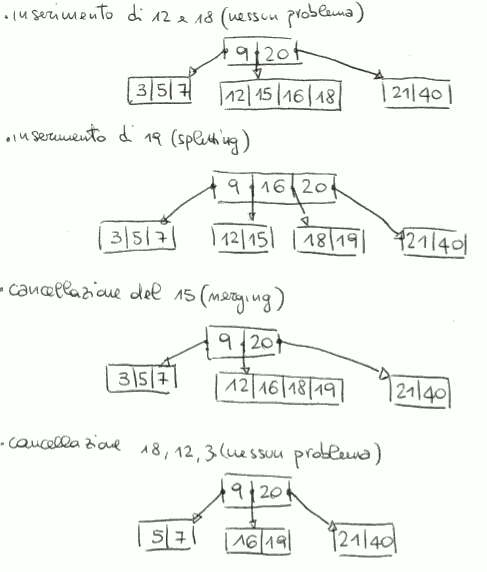 . inserimento di 12 e 18 (nessun problema)
9 20
3 5 7 12 15 16 18 21 40
. inserimento di 19 (splitting)
9 16 20
3 5 7 12 15 18 19 21 40
. cancellazione del 15 (merging)
9 20
3 5 7 12 16 18 19 21 40
. cancellazione 18, 12, 3 (nessun problema)
9 20
5 7 16 19 21 40